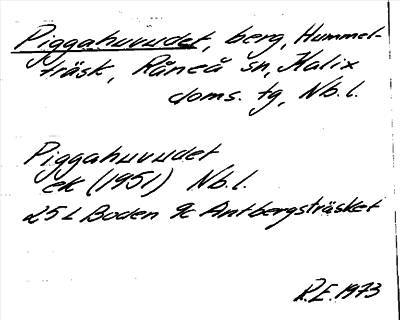 Piggahuvudet, berg, Hummel-
träsk, Råneå sn, Kalix
doms. tg, Nb. l.
Piggahuvudet
ek (1951) Nb. l.
25 L Boden 9c Antbergsträsket
R.E. 1973